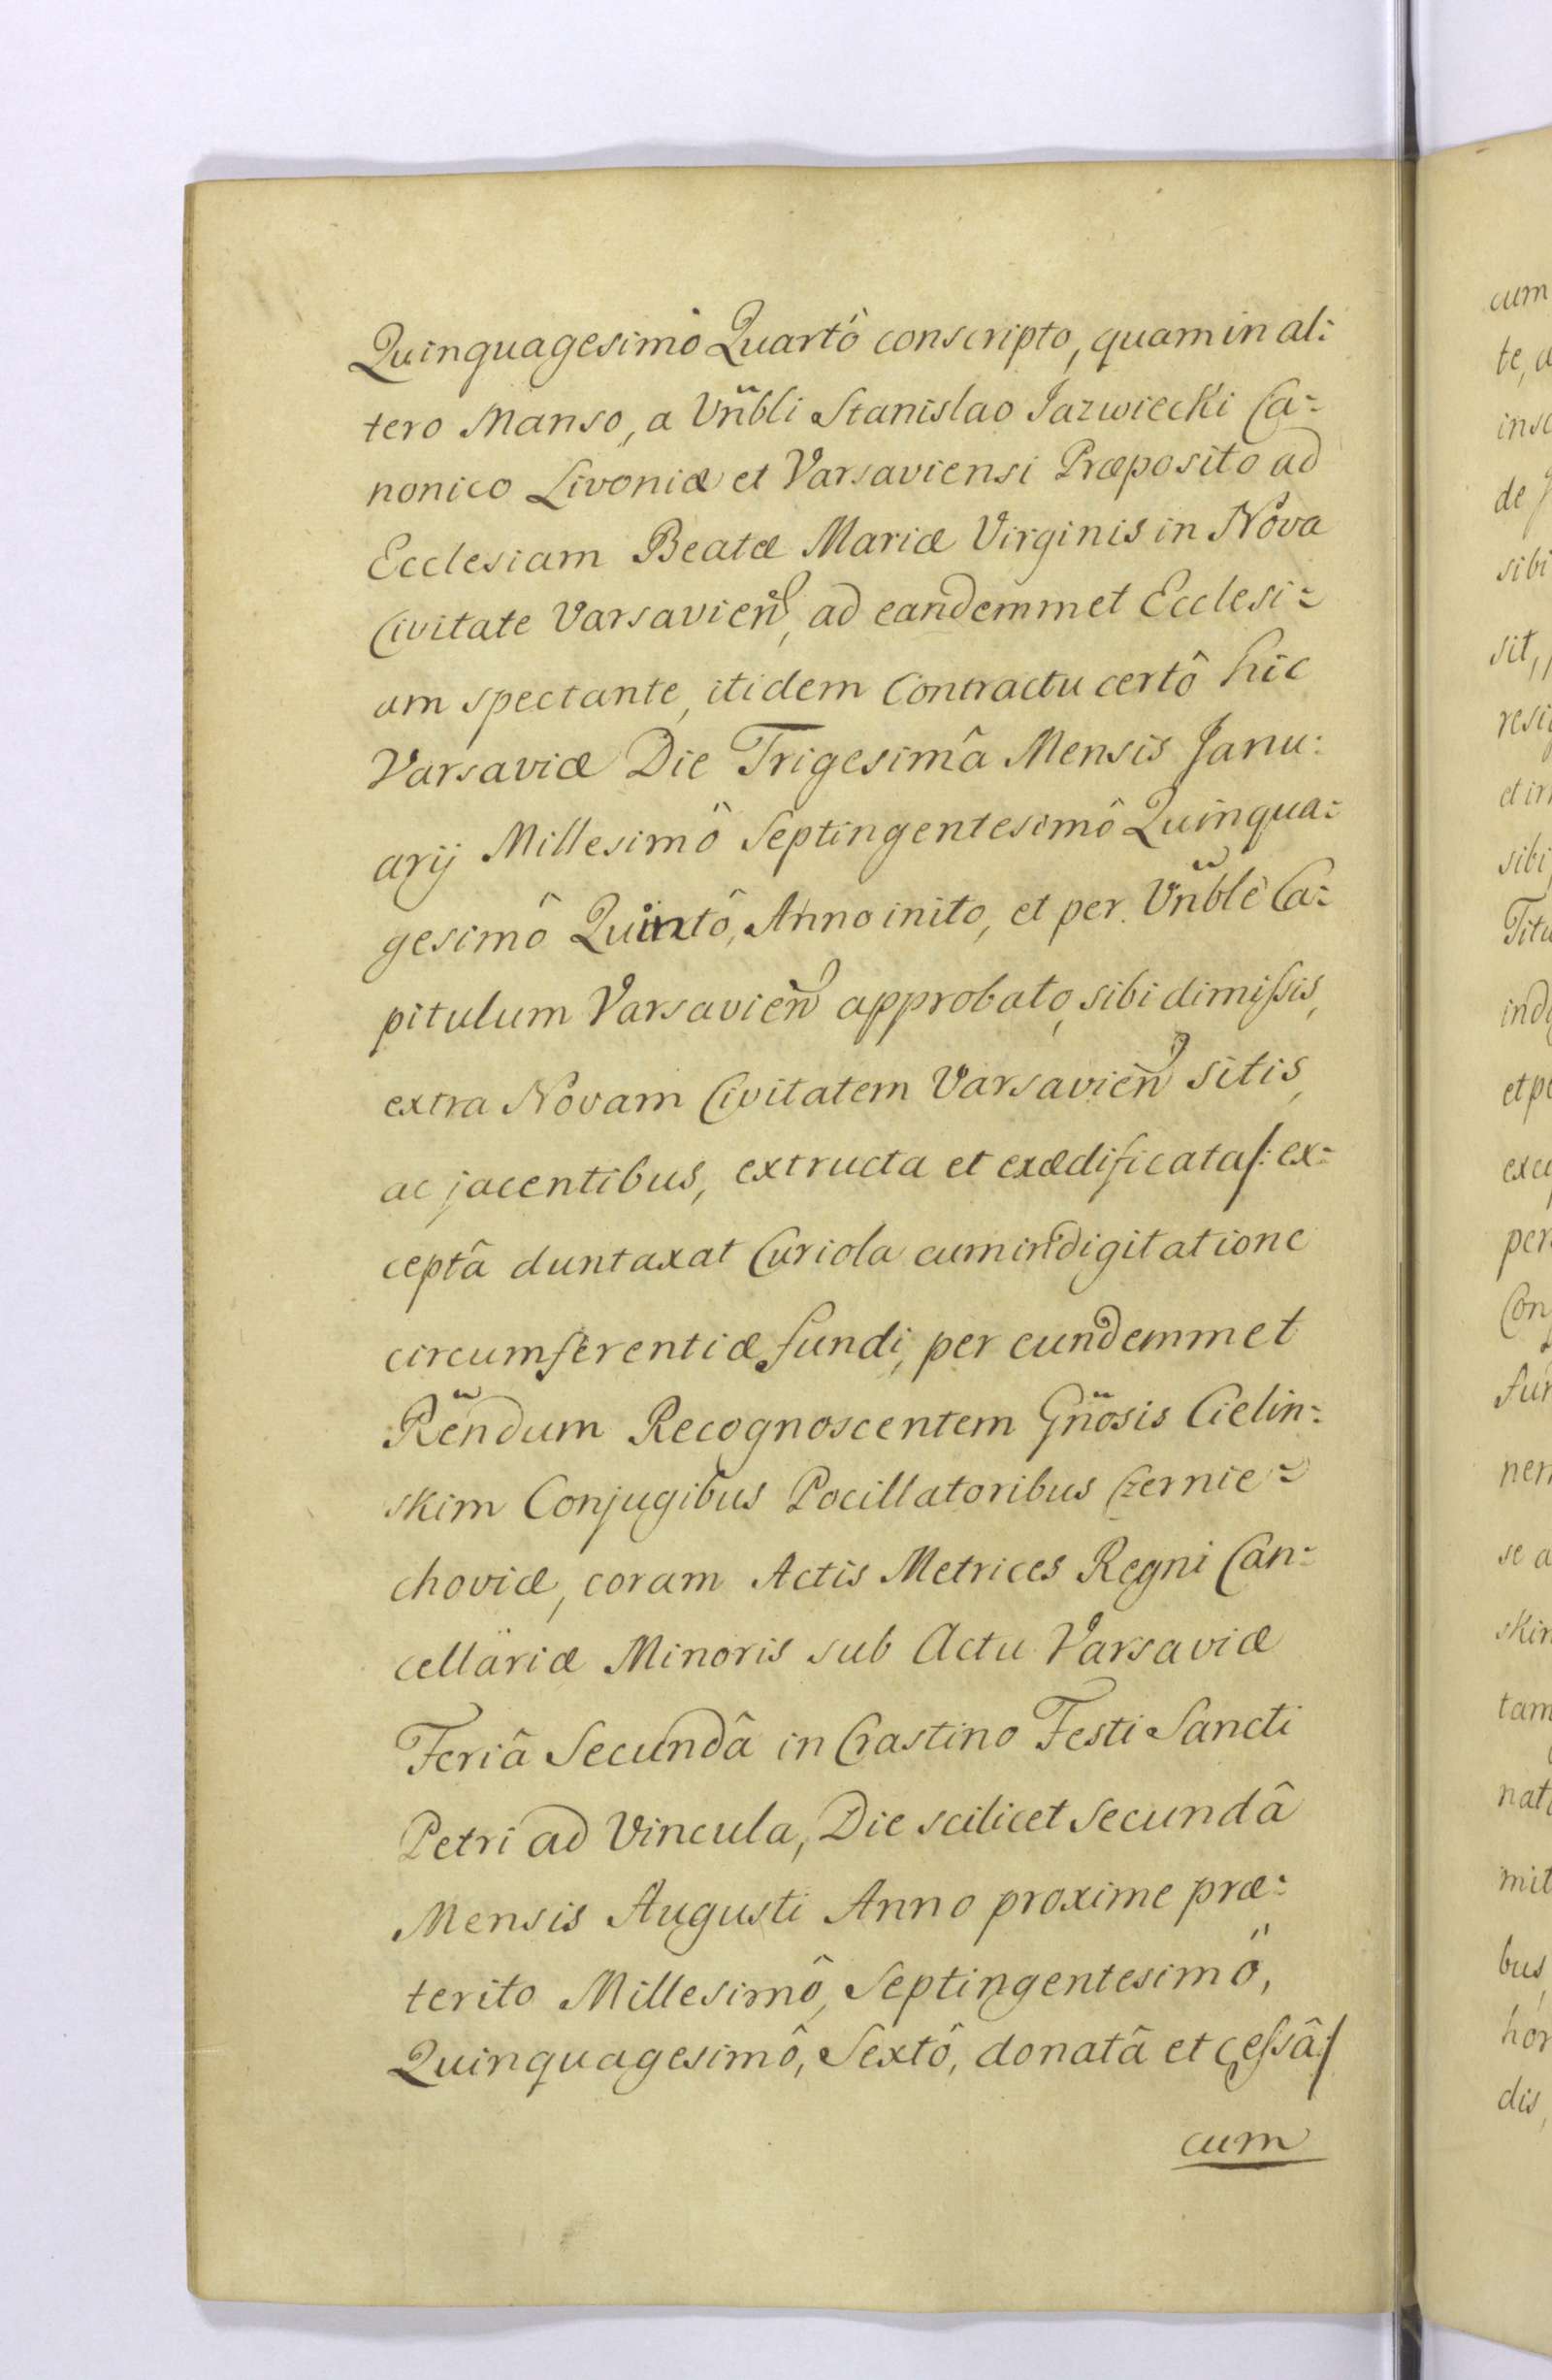 Quinquagesimô Quartô conscripto, quam in al:
tero Manso, a Vñbli Stanislao Jazwiecki Ca=
nonico Livoniæ et Varsaviensi Præposito ad
Ecclesiam Beatæ Mariæ Virginis in Nova
Civitate Varsavien̄, ad eandemmet Ecclesi=
am spectante, itidem Contractu certô hic
Varsaviæ Die Trigesimâ Mensis Janu:
arij Millesimô Septingentesimô Quinqua:
gesimô Quintô, Anno inito, et per Vñble Ca:
pitulum Varsavien̄ approbato, sibi dimissis,
extra Novam Civitatem Varsavien̄ sitis,
ac jacentibus, extructa et exædificata/: ex=
ceptâ duntaxat Curiola cum indigitatione
circumferentiæ fundi, per eundemmet
Rẽndum Recognoscentem Gñosis Cielin:
skim Conjugibus Pocillatoribus Czernie=
choviæ, coram Actis Metrices Regni Can:
cellariæ Minoris sub Actu Varsaviæ
Feriâ Secundâ in Crastino Festi Sancti
Petri ad Vincula, Die scilicet Secundâ
Mensis Augusti Anno proxime præ:
terito Millesimô, Septingentesimô,
Quinquagesimô, Sextô, donatâ et cessâ:/
cum
cum
te,
de
sibi
sit,